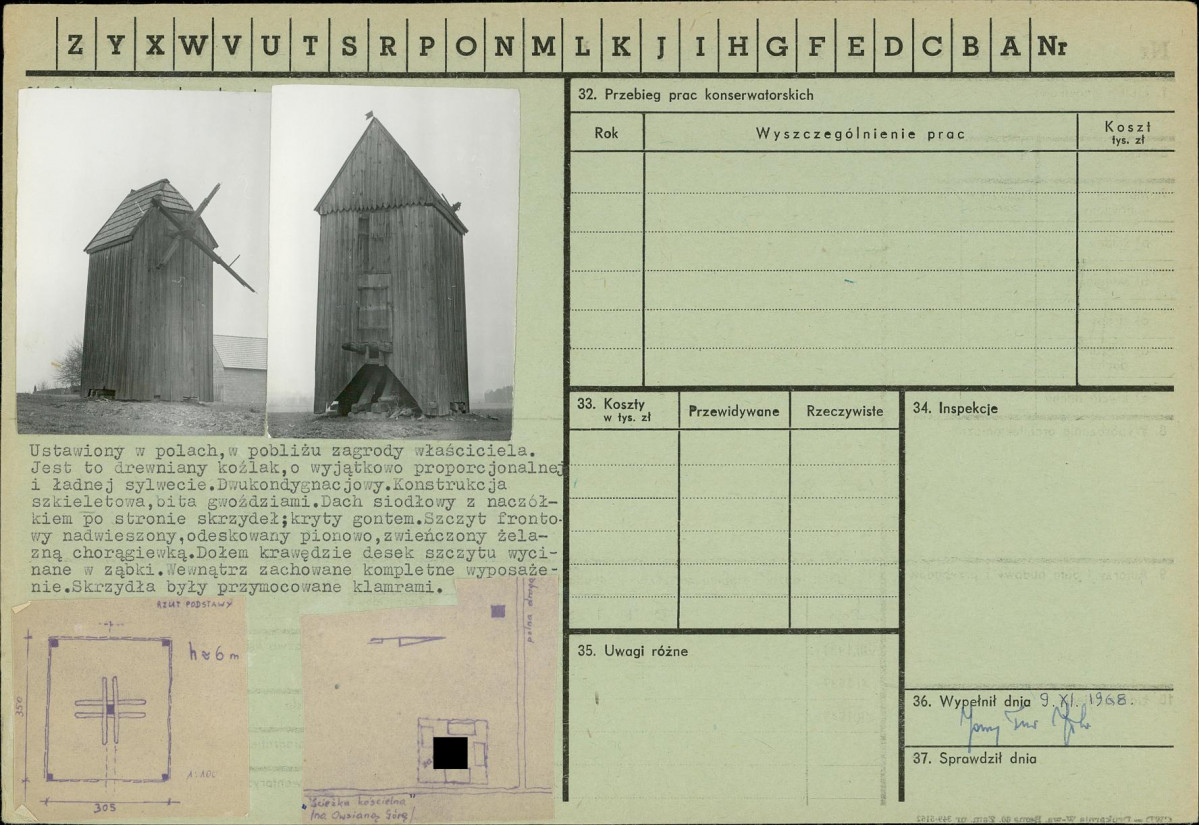 Z Y X W V U T S R P O N M L K J I H G F E D C B A Nr
32. Przebieg prac konserwatorskich
Rok
Wyszczególnienie prac
Koszt
tys. zł
Ustawiony w polach,w pobliżu zagrody właściciela.
Jest to drewniany koźlak,o wyjątkowo proporcjonalnej
i ładnej sylwecie.Dwukondygnacjowy.Konstrukcja
szkieletowa,bita gwoździami.Dach siodłowy z naczół-
kiem po stronie skrzydeł;kryty gontem.Szczyt fronto-
wy nadwieszony,odeskowany pionowo,zwieńczony żela-
zną chorągiewką.Dołem krawędzie desek szczytu wyci-
nane w ząbki.Wewnątrz zachowane kompletne wyposaże-
nie.Skrzydła były przymocowane klamrami.
RZUT PODSTAWY
h≈6m
350
305
1:100
polna droga
"Ścieżka kościelna"
/na Owsianą Górę/
33. Koszty
w tys. zł
Przewidywane
Rzeczywiste
34. Inspekcje
35. Uwagi różne
36. Wypełnił dnia 9.XI.1968.
37. Sprawdził dnia